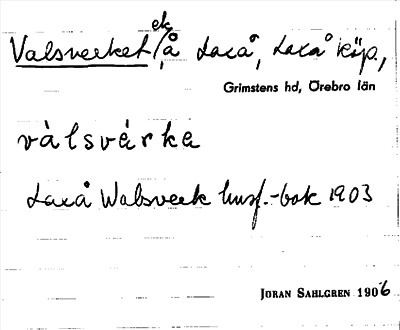 Valsverket, ek. å Laxå, Laxå köp.,
Grimstens hd, Örebro län
vàlsvárka
Laxå Walsverk husf.-bok 1903
JÖRAN SAHLGREN 1906